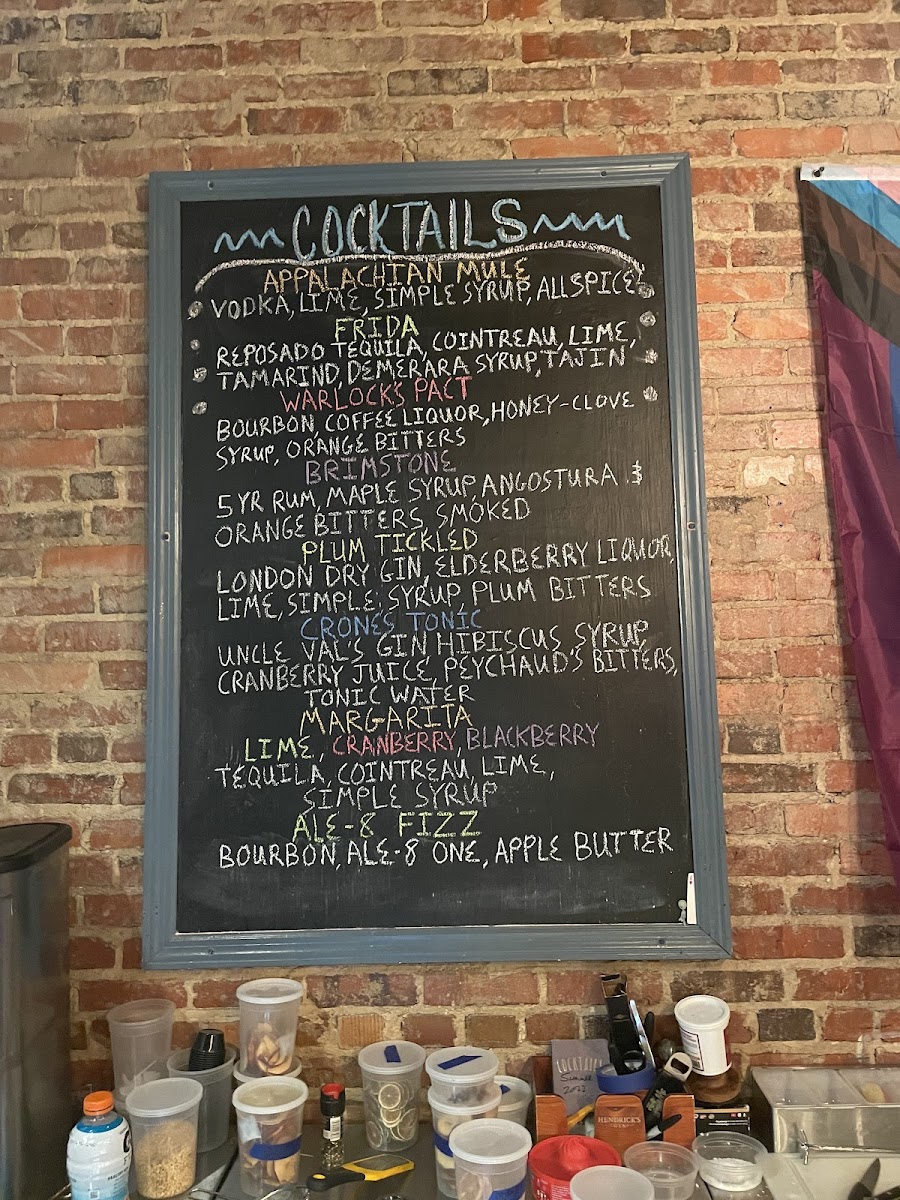 COCKTAILS
APPALACHIAN MULE
VODKA, LIME, SIMPLE SYRUP, ALLSPICE
FRIDA
REPOSADO TEQUILA, COINTREAU, LIME,
TAMARIND, DEMERARA SYRUP, TAJIN
WARLOCK'S PACT
BOURBON, COFFEE LIQUOR, HONEY-CLOVE
SYRUP, ORANGE BITTERS
BRIMSTONE
5 YR RUM, MAPLE SYRUP, ANGOSTURA &
ORANGE BITTERS, SMOKED
PLUM TICKLED
LONDON DRY GIN, ELDERBERRY LIQUOR,
LIME, SIMPLE, SYRUP, PLUM BITTERS
CRONES TONIC
UNCLE VAL'S GIN HIBISCUS SYRUP,
CRANBERRY JUICE, PEYCHAUD'S BITTERS,
TONIC WATER
MARGARITA
LIME, CRANBERRY, BLACKBERRY
TEQUILA, COINTREAU, LIME,
SIMPLE SYRUP
ALE-8 FIZZ
BOURBON, ALE-8 ONE, APPLE BUTTER
COCKTAILS
HENDRICK'S